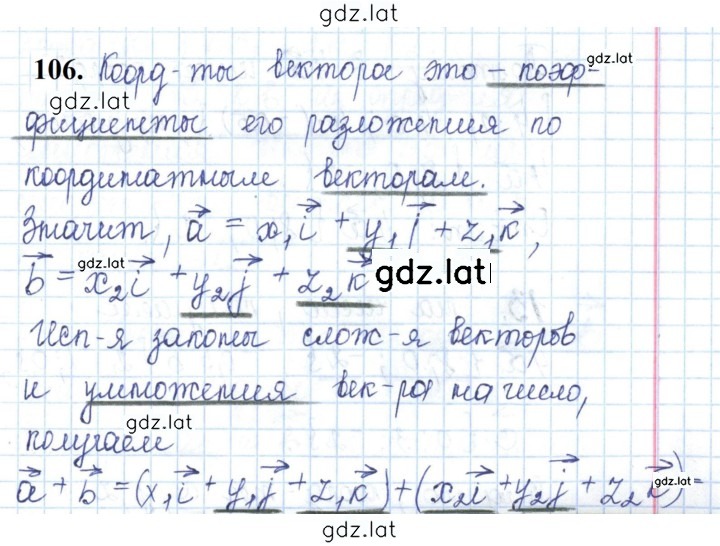 gdz.lat
106. Коорд-ты вектора это – коэф-
gdz.lat
gdz.lat
фициенты его разложения по
координатным векторам.
gdz.lat
Значит, a⃗ = x₁i⃗ + y₁j⃗ + z₁k⃗,
b⃗ = x₂i⃗ + y₂j⃗ + z₂k⃗
gdz.lat
gdz.lat
Исп-я законы слож-я векторов
и умножения век-ра на число,
gdz.lat
получаем
a⃗ + b⃗ = (x₁i⃗ + y₁j⃗ + z₁k⃗) + (x₂i⃗ + y₂j⃗ + z₂k⃗) =
gdz.lat
gdz.lat
gdz.lat